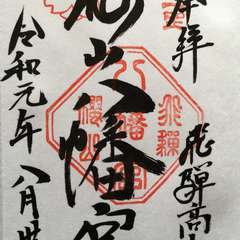 奉拝
飛騨高
桜山八幡宮
八幡宮
飛騨
櫻山
令和元年八月